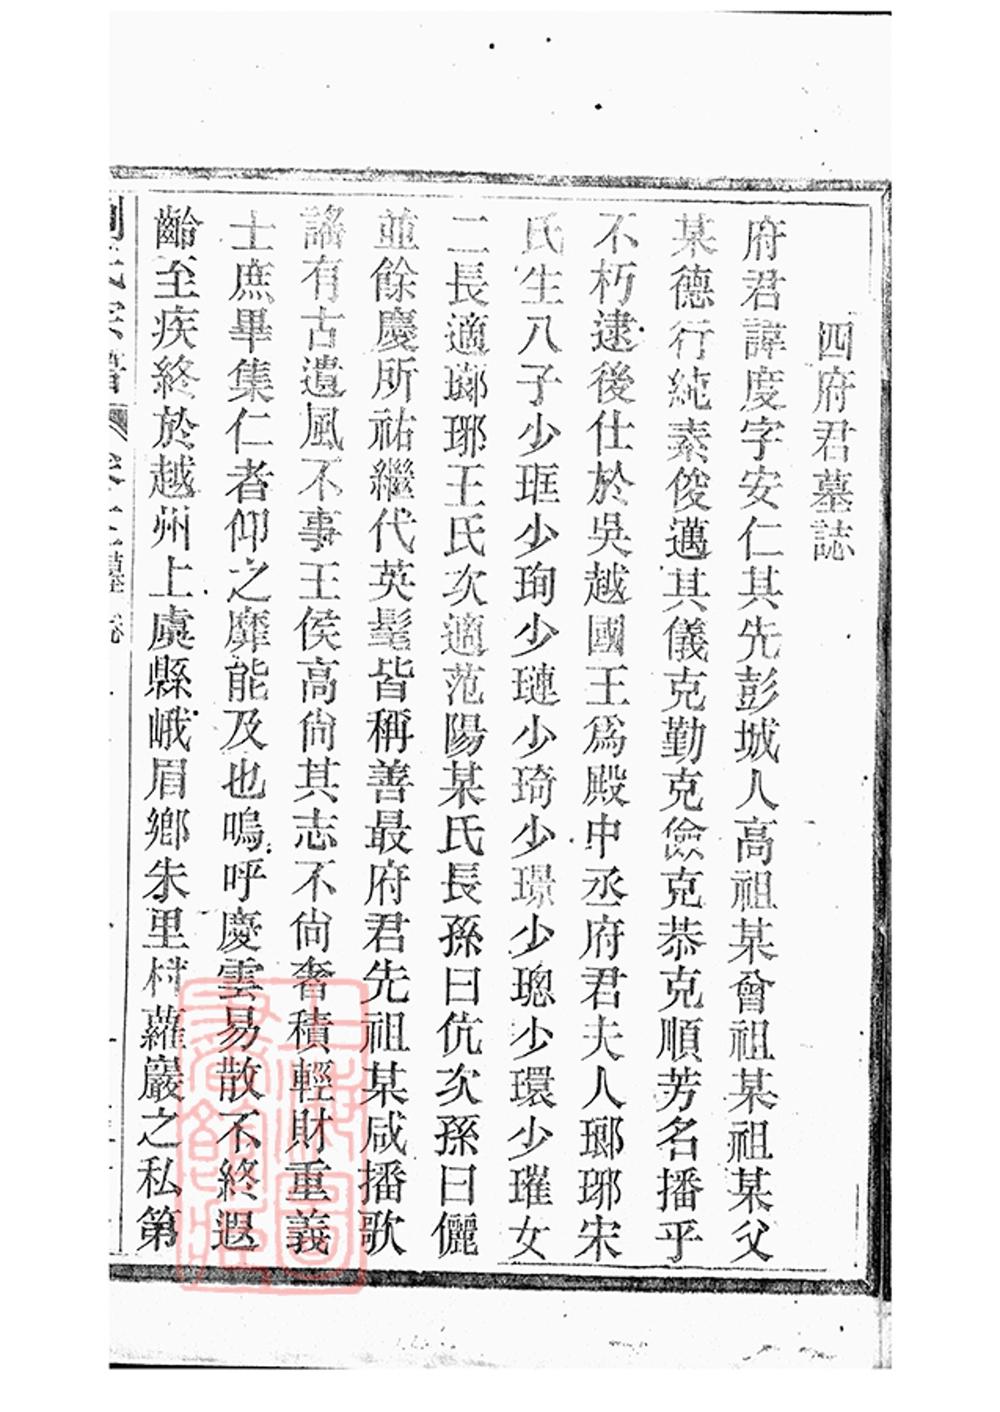 四府君墓誌
府君諱度字安仁其先彭城人高祖某曾祖某祖某父
某德行純素俊邁其儀克勤克儉克恭克順芳名播乎
不朽逮後仕於吳越國王爲殿中丞府君夫人瑯琊宋
氏生八子少珄少珣少璉少琦少璟少璁少環少璀女
二長適瑯琊王氏次適范陽某氏長孫曰伉次孫曰儷
並餘慶所祐繼代英髦皆稱善最府君先祖某咸播歌
謠有古遺風不事王侯高尙其志不尙奢積輕財重義
士庶畢集仁者仰之靡能及也嗚呼慶雲易散不終遐
齡至疾終於越州上虞縣峨眉鄉朱里村蘿巖之私第
上海圖書館藏